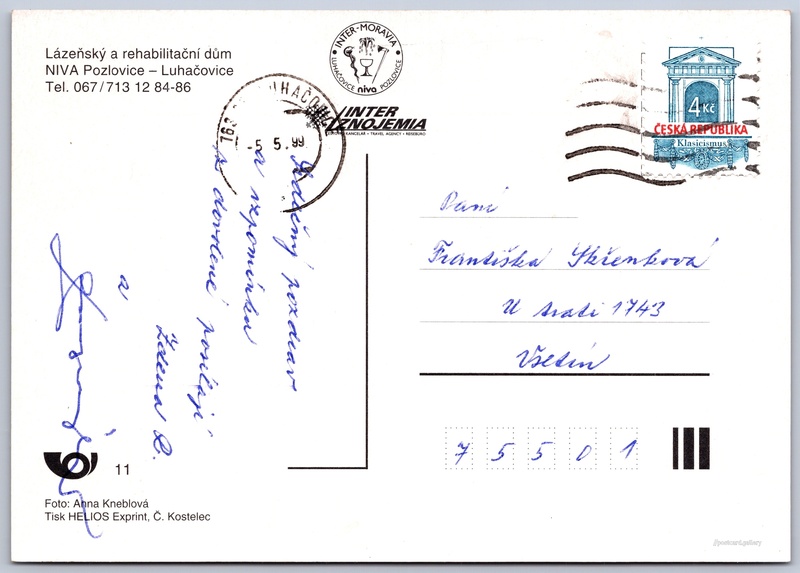 Lázeňský a rehabilitační dům
NIVA Pozlovice – Luhačovice
Tel. 067/713 12 84-86
INTER-MORAVIA
LUHAČOVICE niva POZLOVICE
763 LUHAČOVICE
-5.5.99
INTER
ZNOJEMIA
KANCELÁŘ – TRAVEL AGENCY – REISEBÜRO
4 Kč
ČESKÁ REPUBLIKA
Klasicismus
Srdečný pozdrav
a vzpomínku
z dovolené posílají
Zdena L.
a
Paní
Františka Skřenková
U trati 1743
Vsetín
75501
11
Foto: Anna Kneblová
Tisk HELIOS Exprint, Č. Kostelec